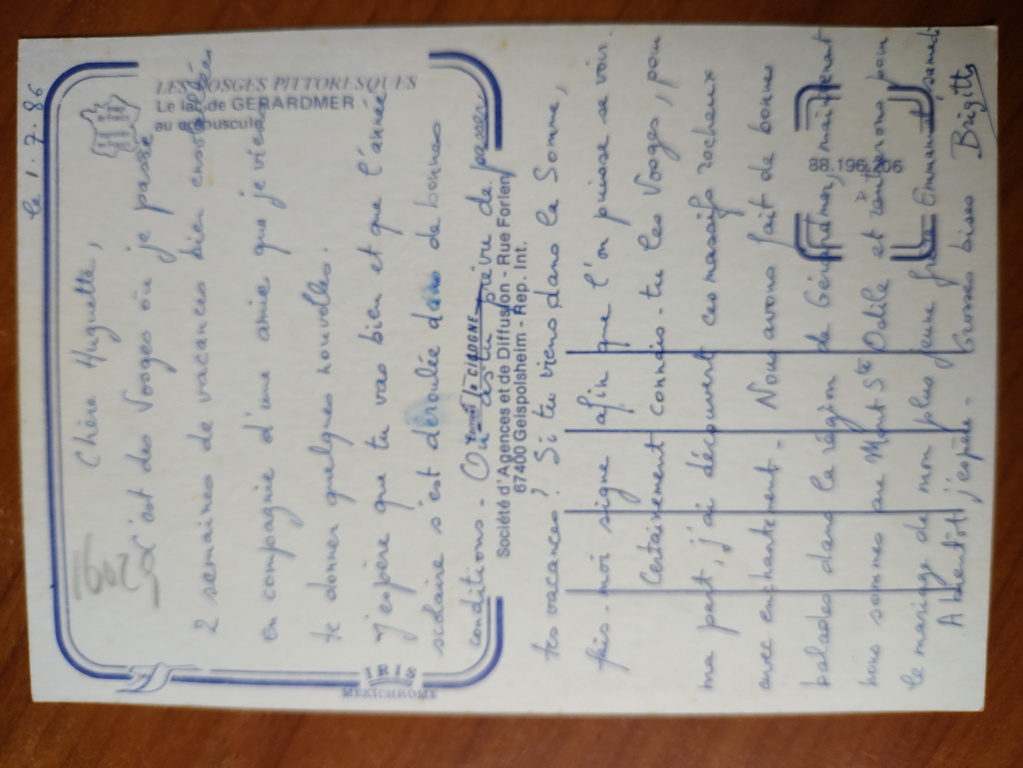 le 1.7.86
LES VOSGES PITTORESQUES
Le lac de GERARDMER
au crépuscule
16025
Chère Huguette,
C'est des Vosges où je passe
2 semaines de vacances bien ensoleillées
en compagnie d'une amie que je viens
te donner quelques nouvelles.
J'espère que tu vas bien et que l'année
scolaire s'est déroulée dans de bonnes
conditions - Où as-tu prévu de passer
tes vacances ? Si tu viens dans la Somme,
fais-moi signe afin que l'on puisse se voir.
Certainement connais-tu les Vosges, pour
ma part, j'ai découvert ces massifs rocheux
avec enchantement - Nous avons fait de bonnes
balades dans la région de Gérardmer, maintenant
nous sommes au Mont Ste Odile et rentrerons pour
le mariage de mon plus jeune frère Emmanuel, samedi
A bientôt j'espère - Grosses bises Brigitte
IRIS
MEXICHROME
LA CIGOGNE
Société d'Agences et de Diffusion - Rue Forlen
67400 Geispolsheim - Rep. Int.
88.196.206